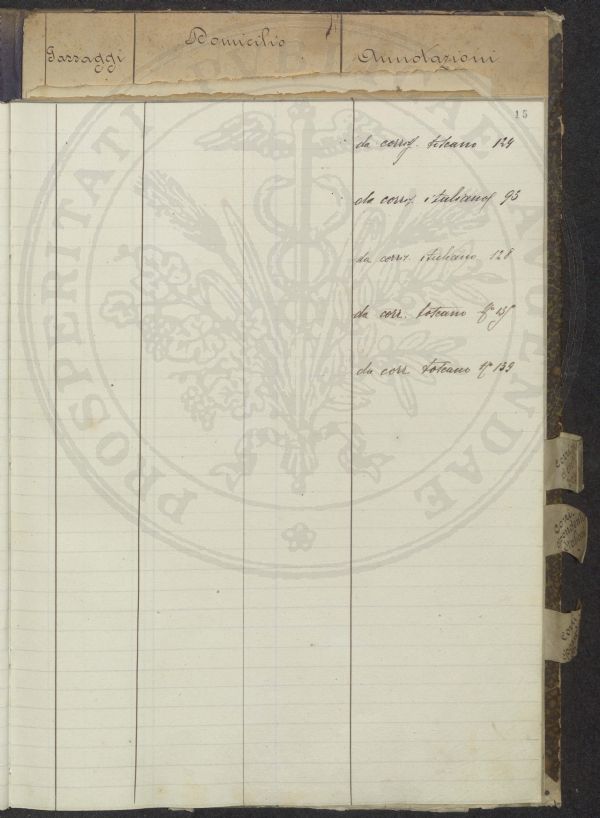 Passaggi Domicilio Annotazioni
15
da corrisp. toscano 124
da corrisp. italiano 93
da corr. italiano 128
da corr. toscano
da corr. toscano 139
PROSPERITATI PUBLICAE AUGENDAE